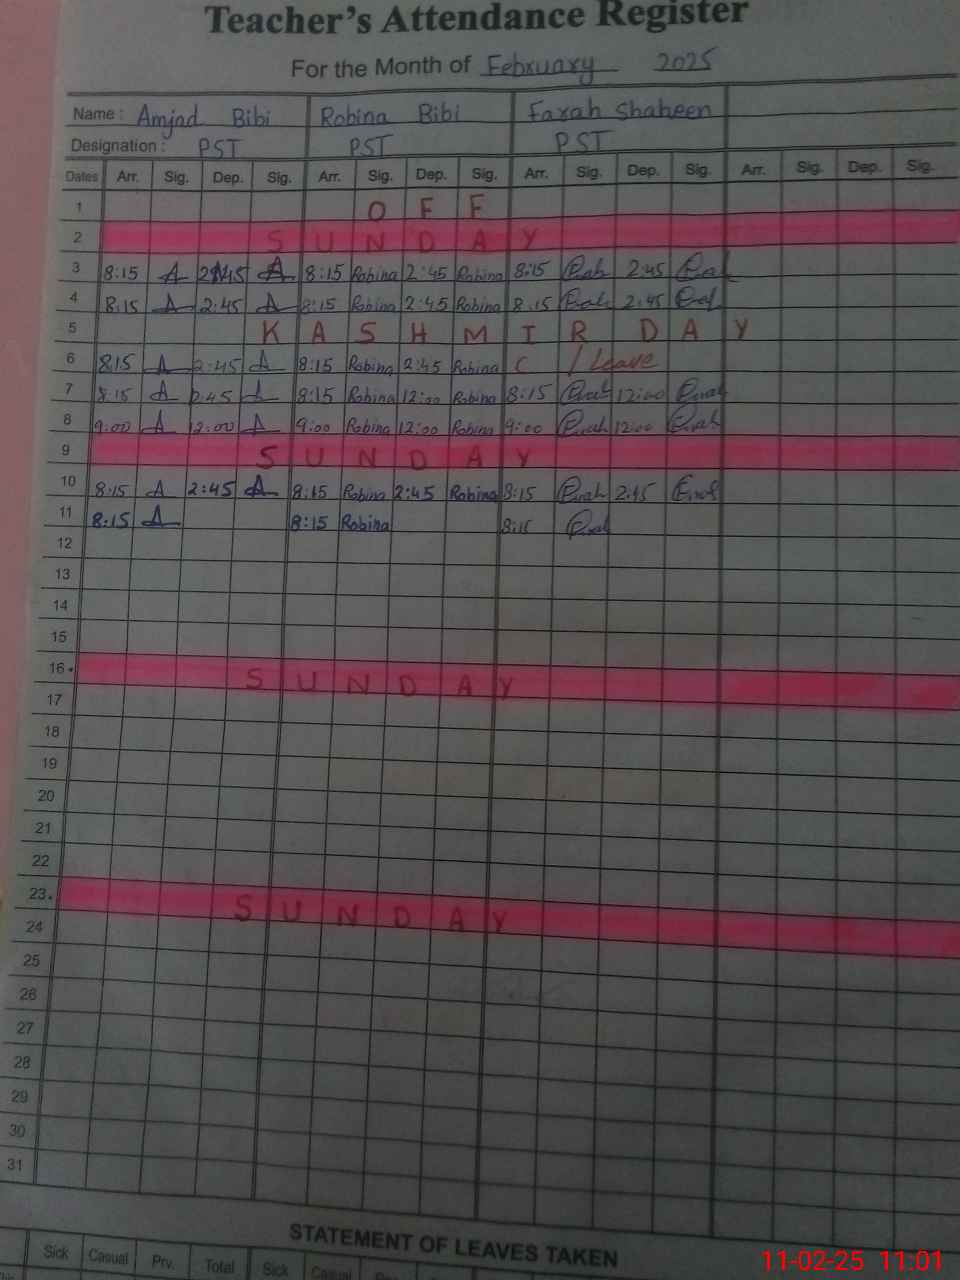 Teacher's Attendance Register
For the Month of February 2025
Name : Amjad Bibi Robina Bibi Farah Shaheen
Designation : PST PST PST
Dates Arr. Sig. Dep. Sig. Arr. Sig. Dep. Sig. Arr. Sig. Dep. Sig. Arr. Sig. Dep. Sig.
1 O F F
2 S U N D A Y
3 8:15 A 2:45 A 8:15 Robina 2:45 Robina 8:15 2:45
4 8:15 A 2:45 A 8:15 Robina 2:45 Robina 8:15 2:45
5 K A S H M I R D A Y
6 8:15 A 2:45 A 8:15 Robina 2:45 Robina C / Leave
7 8:15 A 2:45 A 8:15 Robina 12:00 Robina 8:15 12:00
8 9:00 A 12:00 A 9:00 Robina 12:00 Robina 9:00 12:00
9 S U N D A Y
10 8:15 A 2:45 A 8:15 Robina 2:45 Robina 8:15 2:45
11 8:15 A 8:15 Robina 8:15
12
13
14
15
16 S U N D A Y
17
18
19
20
21
22
23 S U N D A Y
24
25
26
27
28
29
30
31
STATEMENT OF LEAVES TAKEN
Sick Casual Prv. Total Sick Casual
11-02-25 11:01